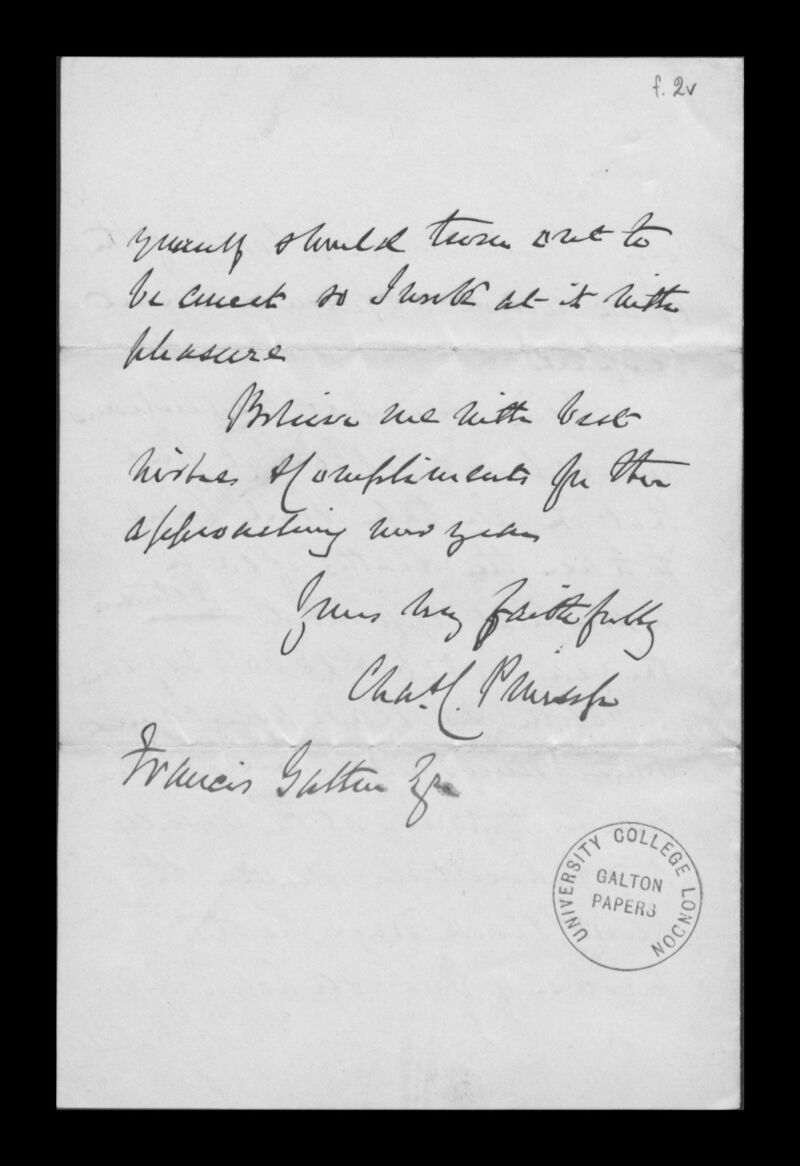 f. 2v
should turn out to
be correct so I work at it with
pleasure
Believe me with best
wishes & Compliments for the
approaching new year
Yours very faithfully
Chas. C.
Francis Galton Esq
UNIVERSITY COLLEGE LONDON
GALTON
PAPERS